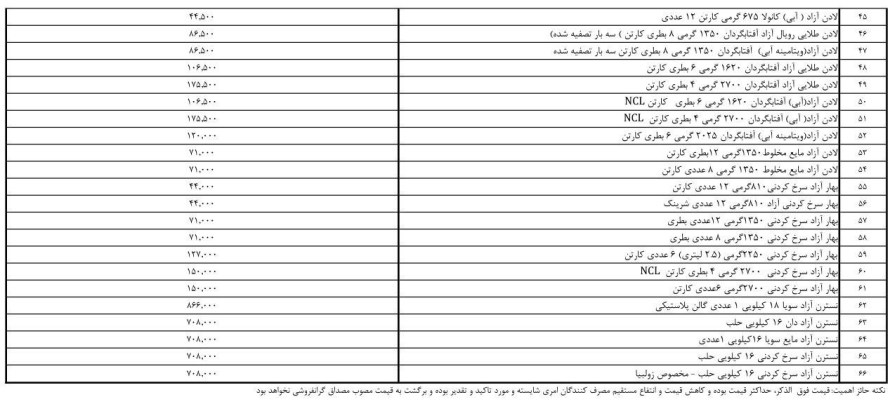 ۴۵ لادن آزاد ( آبی) کانولا ۶۷۵ گرمی کارتن ۱۲ عددی ۴۴,۵۰۰
۴۶ لادن طلایی رویال آزاد آفتابگردان ۱۳۵۰ گرمی ۸ بطری کارتن ) سه بار تصفیه شده) ۸۶,۵۰۰
۴۷ لادن آزاد(ویتامینه آبی) آفتابگردان ۱۳۵۰ گرمی ۸ بطری کارتن سه بار تصفیه شده ۸۶,۵۰۰
۴۸ لادن طلایی آزاد آفتابگردان ۱۶۲۰ گرمی ۶ بطری کارتن ۱۰۶,۵۰۰
۴۹ لادن طلایی آزاد آفتابگردان ۲۷۰۰ گرمی ۴ بطری کارتن ۱۷۵,۵۰۰
۵۰ لادن آزاد(آبی) آفتابگردان ۱۶۲۰ گرمی ۶ بطری کارتن NCL ۱۰۶,۵۰۰
۵۱ لادن آزاد( آبی) آفتابگردان ۲۷۰۰ گرمی ۴ بطری کارتن NCL ۱۷۵,۵۰۰
۵۲ لادن آزاد(ویتامینه آبی) آفتابگردان ۲۰۲۵ گرمی ۶ بطری کارتن ۱۲۰,۰۰۰
۵۳ لادن آزاد مایع مخلوط۱۳۵۰گرمی ۱۲بطری کارتن ۷۱,۰۰۰
۵۴ لادن آزاد مایع مخلوط ۱۳۵۰ گرمی ۸ عددی کارتن ۷۱,۰۰۰
۵۵ بهار آزاد سرخ کردنی۸۱۰گرمی ۱۲ عددی کارتن ۴۴,۰۰۰
۵۶ بهار سرخ کردنی آزاد ۸۱۰گرمی ۱۲ عددی شرینک ۴۴,۰۰۰
۵۷ بهار آزاد سرخ کردنی ۱۳۵۰گرمی ۱۲عددی بطری ۷۱,۰۰۰
۵۸ بهار آزاد سرخ کردنی ۱۳۵۰گرمی ۸ عددی بطری ۷۱,۰۰۰
۵۹ بهار آزاد سرخ کردنی ۲۲۵۰گرمی (۲.۵ لیتری) ۶ عددی کارتن ۱۲۷,۰۰۰
۶۰ بهار آزاد سرخ کردنی ۲۷۰۰ گرمی ۴ بطری کارتن NCL ۱۵۰,۰۰۰
۶۱ بهار آزاد سرخ کردنی ۲۷۰۰گرمی ۶عددی کارتن ۱۵۰,۰۰۰
۶۲ نسترن آزاد سویا ۱۸ کیلویی ۱ عددی گالن پلاستیکی ۸۶۶,۰۰۰
۶۳ نسترن آزاد دان ۱۶ کیلویی حلب ۷۰۸,۰۰۰
۶۴ نسترن آزاد مایع سویا ۱۶کیلویی ۱عددی ۷۰۸,۰۰۰
۶۵ نسترن آزاد سرخ کردنی ۱۶ کیلویی حلب ۷۰۸,۰۰۰
۶۶ نسترن آزاد سرخ کردنی ۱۶ کیلویی حلب - مخصوص زولبیا ۷۰۸,۰۰۰
نکته حائز اهمیت: قیمت فوق الذکر، حداکثر قیمت بوده و کاهش قیمت و انتفاع مستقیم مصرف کنندگان امری شایسته و مورد تاکید و تقدیر بوده و برگشت به قیمت مصوب مصداق گرانفروشی نخواهد بود